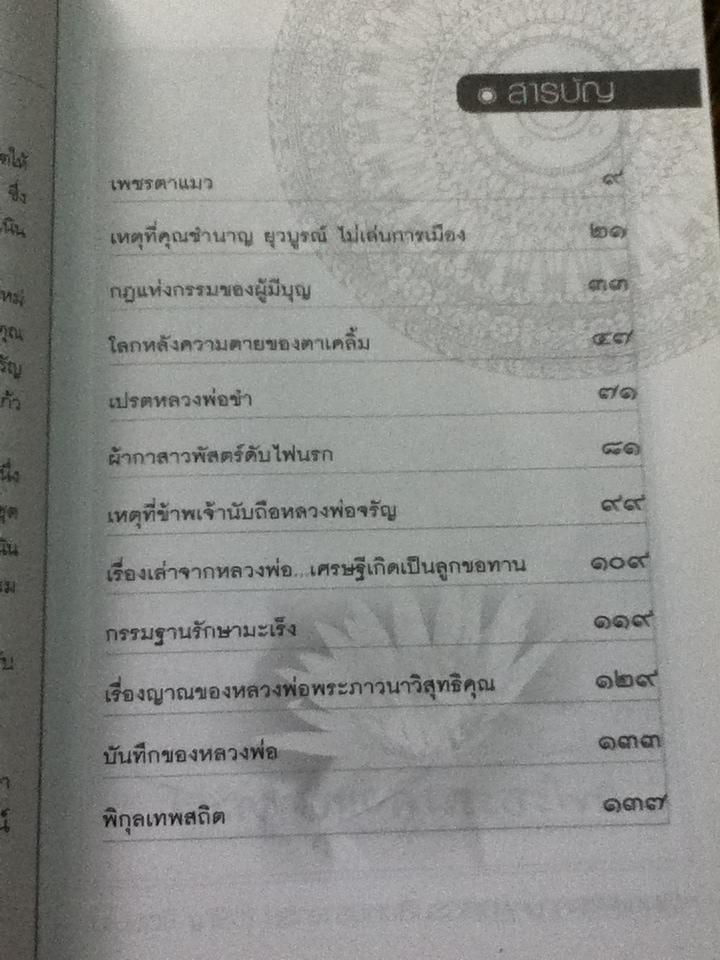 สารบัญ
เพชรตาแมว ๙
เหตุที่คุณชำนาญ ยุวบูรณ์ ไม่เล่นการเมือง ๒๑
กฎแห่งกรรมของผู้มีบุญ ๓๓
โลกหลังความตายของตาเคลิ้ม ๔๗
เปรตหลวงพ่อขำ ๗๑
ผ้ากาสาวพัสตร์ดับไฟนรก ๘๑
เหตุที่ข้าพเจ้านับถือหลวงพ่อจรัญ ๙๙
เรื่องเล่าจากหลวงพ่อ...เศรษฐีเกิดเป็นลูกขอทาน ๑๐๙
กรรมฐานรักษามะเร็ง ๑๑๙
เรื่องญาณของหลวงพ่อพระภาวนาวิสุทธิคุณ ๑๒๙
บันทึกของหลวงพ่อ ๑๓๓
พิกุลเทพสถิต ๑๓๗